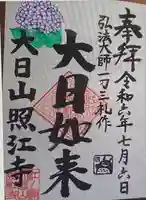 奉拝
令和六年七月六日
弘法大師一刀三礼作
大日如来
大日山照江寺